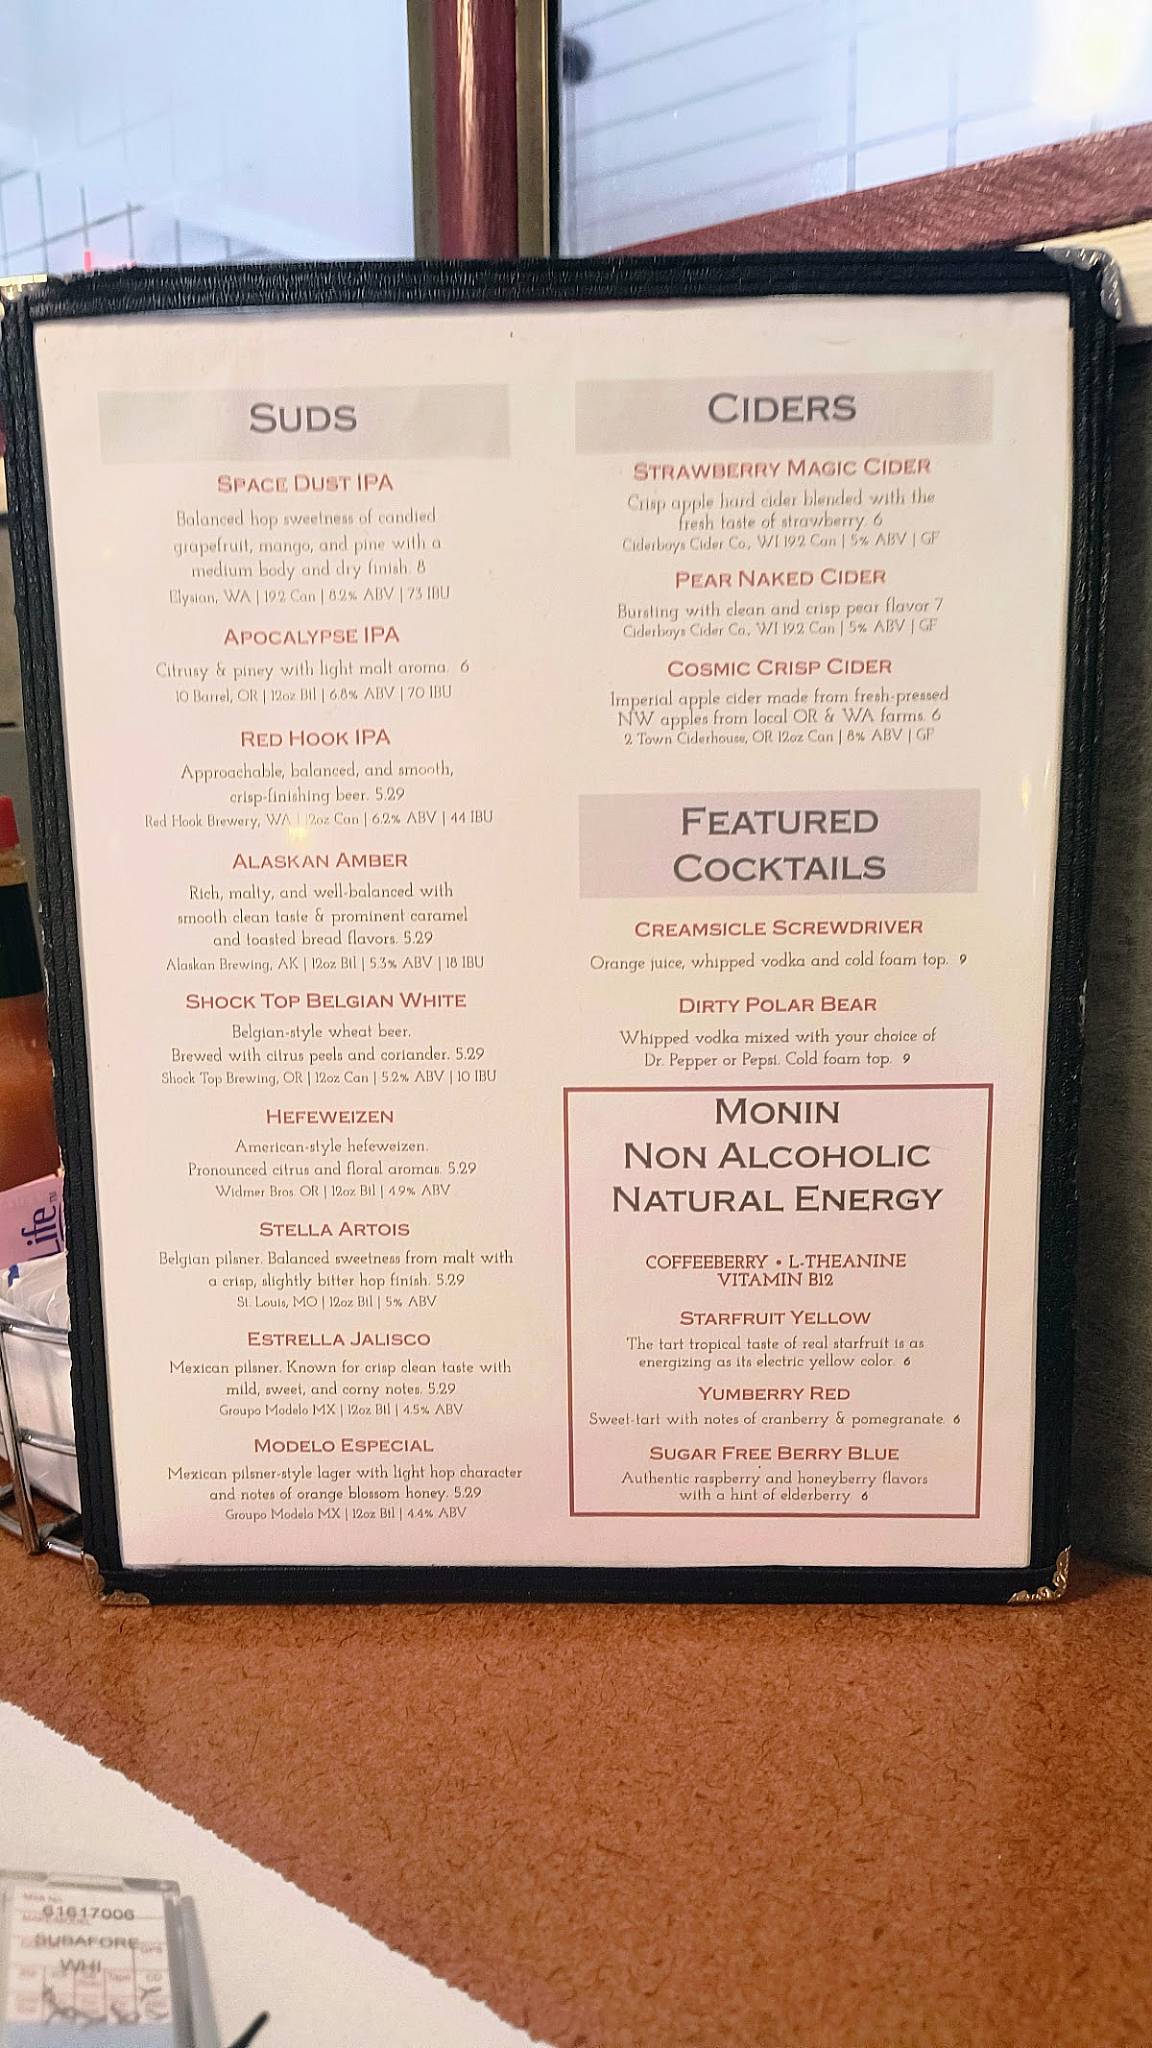 SUDS
SPACE DUST IPA
Balanced hop sweetness of candied
grapefruit, mango, and pine with a
medium body and dry finish. 8
Elysian, WA | 19.2 Can | 8.2% ABV | 73 IBU
APOCALYPSE IPA
Citrusy & piney with light malt aroma. 6
10 Barrel, OR | 12oz Btl | 6.8% ABV | 70 IBU
RED HOOK IPA
Approachable, balanced, and smooth,
crisp-finishing beer. 5.29
Red Hook Brewery, WA | 12oz Can | 6.2% ABV | 44 IBU
ALASKAN AMBER
Rich, malty, and well-balanced with
smooth clean taste & prominent caramel
and toasted bread flavors. 5.29
Alaskan Brewing, AK | 12oz Btl | 5.3% ABV | 18 IBU
SHOCK TOP BELGIAN WHITE
Belgian-style wheat beer.
Brewed with citrus peels and coriander. 5.29
Shock Top Brewing, OR | 12oz Can | 5.2% ABV | 10 IBU
HEFEWEIZEN
American-style hefeweizen.
Pronounced citrus and floral aromas. 5.29
Widmer Bros. OR | 12oz Btl | 4.9% ABV
STELLA ARTOIS
Belgian pilsner. Balanced sweetness from malt with
a crisp, slightly bitter hop finish. 5.29
St. Louis, MO | 12oz Btl | 5% ABV
ESTRELLA JALISCO
Mexican pilsner. Known for crisp clean taste with
mild, sweet, and corny notes. 5.29
Groupo Modelo MX | 12oz Btl | 4.5% ABV
MODELO ESPECIAL
Mexican pilsner-style lager with light hop character
and notes of orange blossom honey. 5.29
Groupo Modelo MX | 12oz Btl | 4.4% ABV
CIDERS
STRAWBERRY MAGIC CIDER
Crisp apple hard cider blended with the
fresh taste of strawberry. 6
Ciderboys Cider Co., WI 19.2 Can | 5% ABV | GF
PEAR NAKED CIDER
Bursting with clean and crisp pear flavor 7
Ciderboys Cider Co., WI 19.2 Can | 5% ABV | GF
COSMIC CRISP CIDER
Imperial apple cider made from fresh-pressed
NW apples from local OR & WA farms. 6
2 Town Ciderhouse, OR 12oz Can | 8% ABV | GF
FEATURED
COCKTAILS
CREAMSICLE SCREWDRIVER
Orange juice, whipped vodka and cold foam top. 9
DIRTY POLAR BEAR
Whipped vodka mixed with your choice of
Dr. Pepper or Pepsi. Cold foam top. 9
MONIN
NON ALCOHOLIC
NATURAL ENERGY
COFFEEBERRY • L-THEANINE
VITAMIN B12
STARFRUIT YELLOW
The tart tropical taste of real starfruit is as
energizing as its electric yellow color. 6
YUMBERRY RED
Sweet-tart with notes of cranberry & pomegranate. 6
SUGAR FREE BERRY BLUE
Authentic raspberry and honeyberry flavors
with a hint of elderberry. 6
Life
61617006
SUBAFORE
WHI